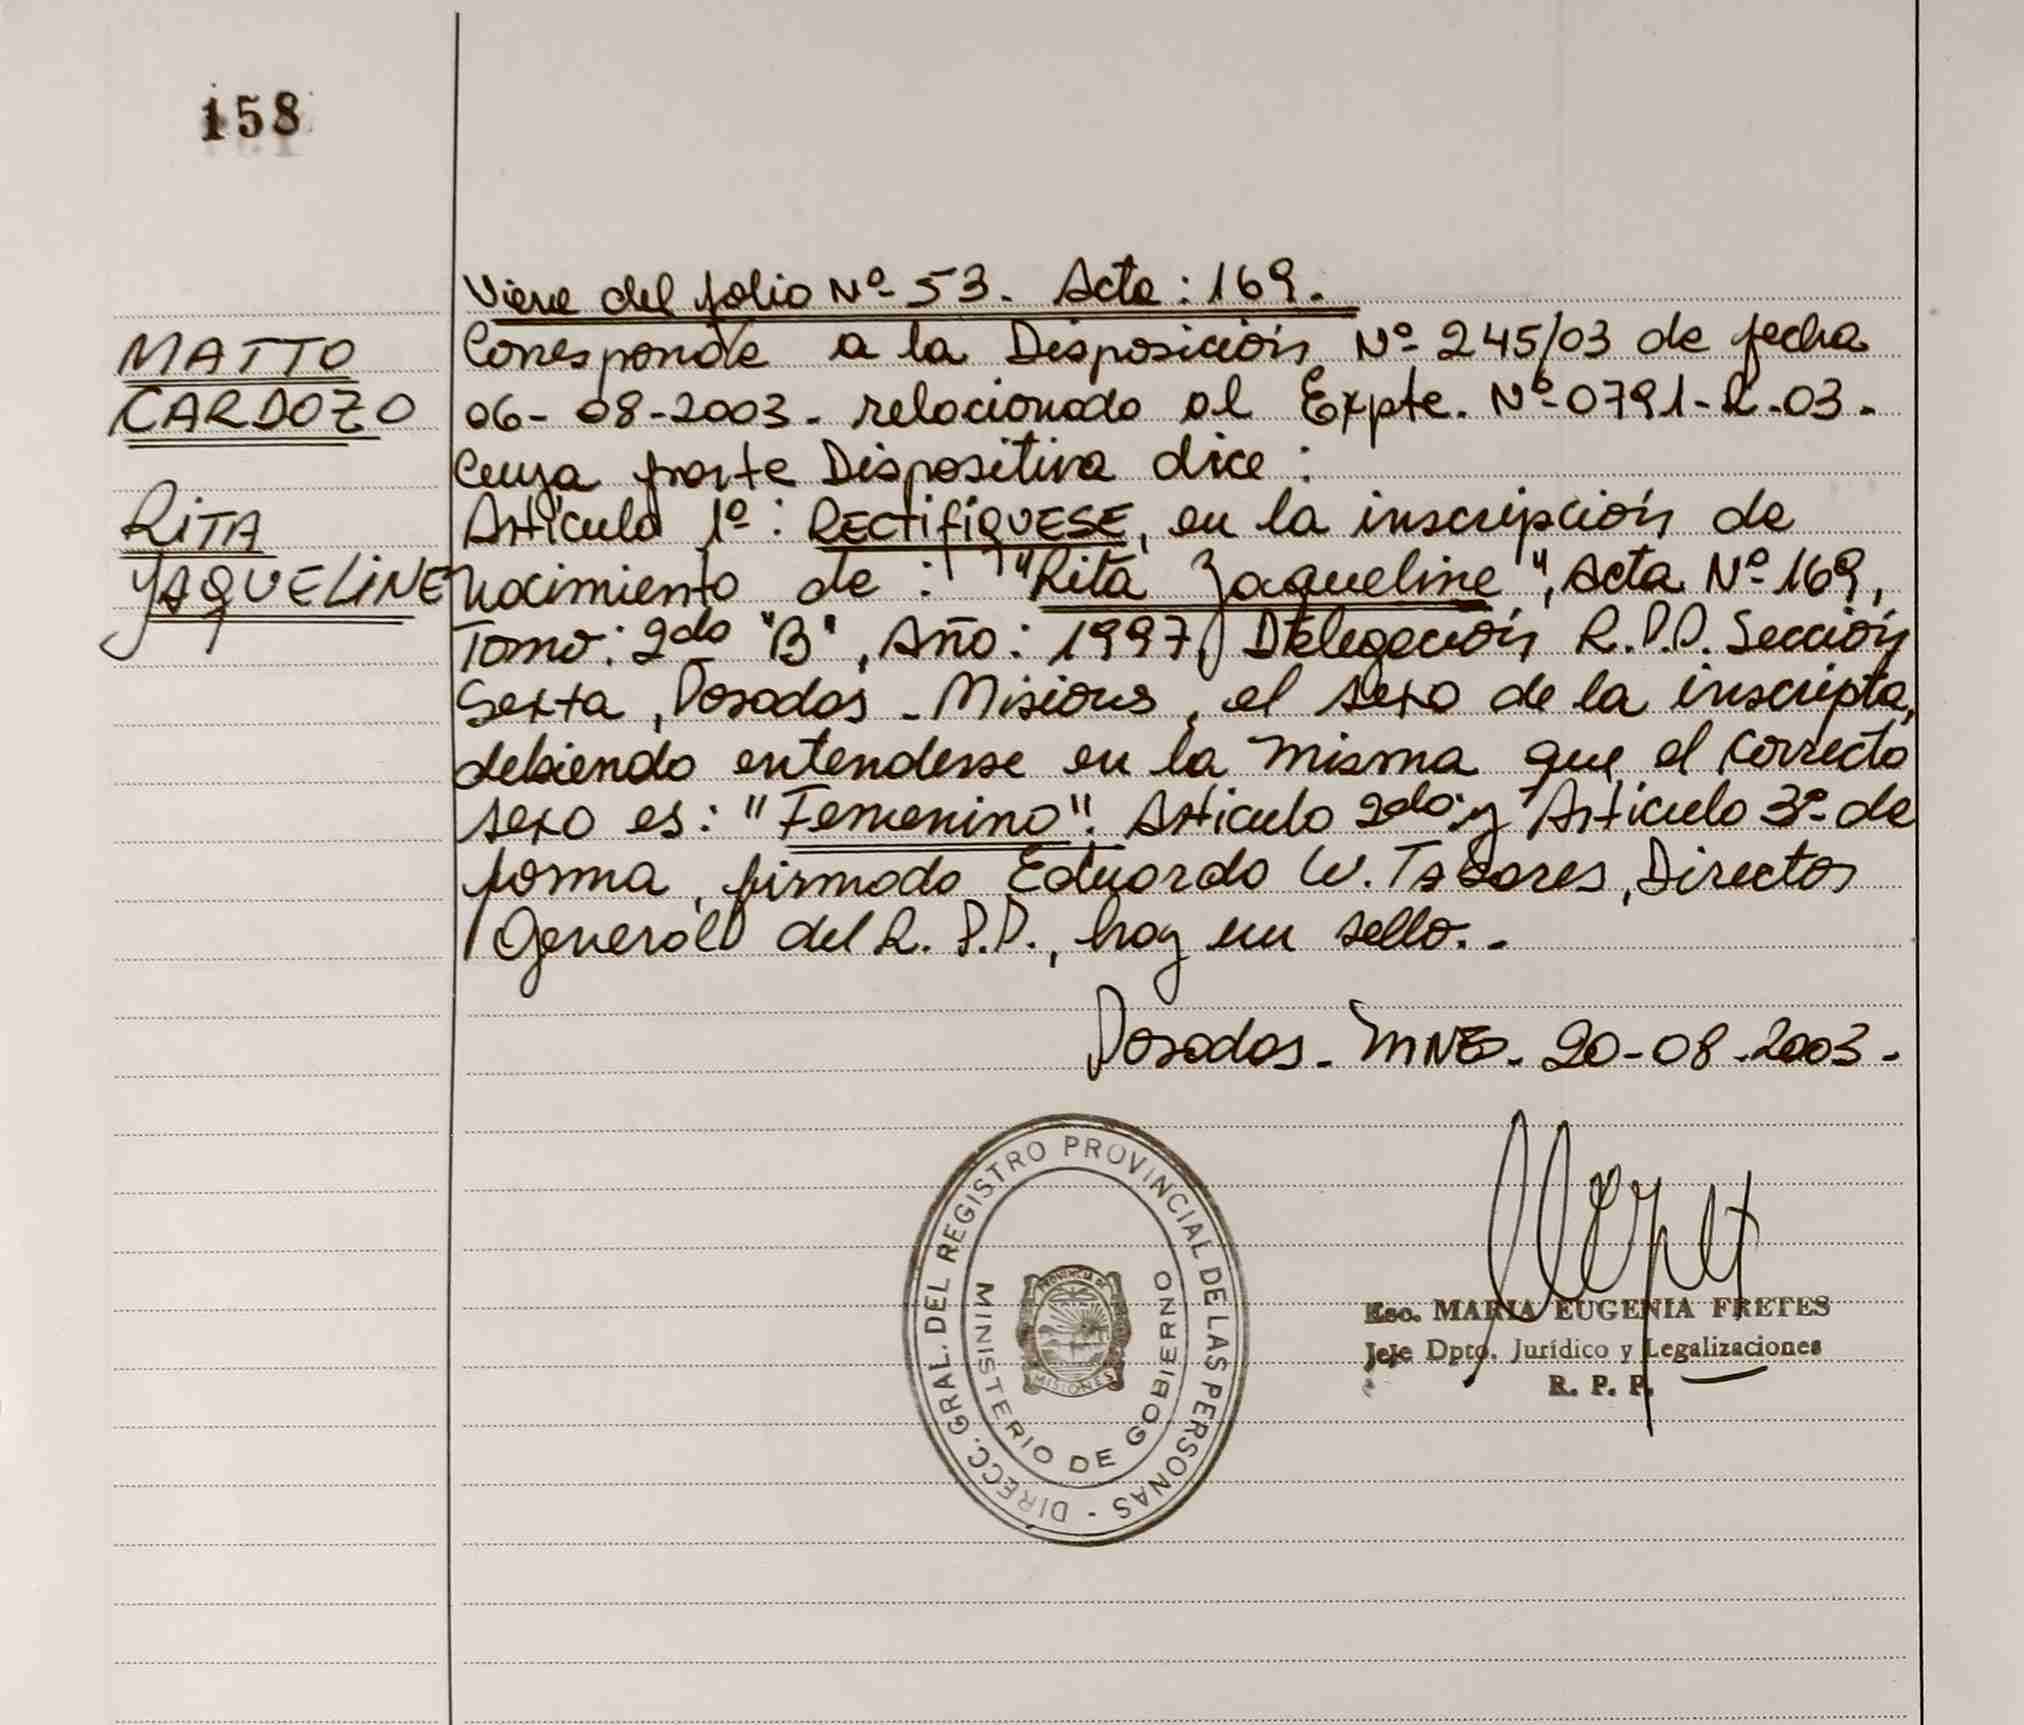 158
Viene del folio Nº 53. Acta: 169.
MATTO
CARDOZO
RITA
YAQUELINE
Corresponde a la Disposición Nº 245/03 de fecha
06-08-2003- relacionado al Expte. Nº 0791-R-03-
Cuya parte Dispositiva dice:
Artículo 1º: RECTIFIQUESE, en la inscripción de
nacimiento de: "Rita Yaqueline", Acta Nº 169,
Tomo: 2do "B", Año: 1997, Delegación R.P.P. Sección
Sexta, Posadas - Misiones, el sexo de la inscripta,
debiendo entenderse en la misma que el correcto
sexo es: "Femenino". Artículo 2do y Artículo 3º de
forma, firmado Eduardo W. Tabores, Director
General del R.P.P., hay un sello.-
Posadas - MNES - 20-08-2003-
DIRECC. GRAL. DEL REGISTRO PROVINCIAL DE LAS PERSONAS -
MINISTERIO DE GOBIERNO
PROVINCIA DE
MISIONES
Esc. MARIA EUGENIA FRETES
Jefe Dpto. Jurídico y Legalizaciones
R. P. P.